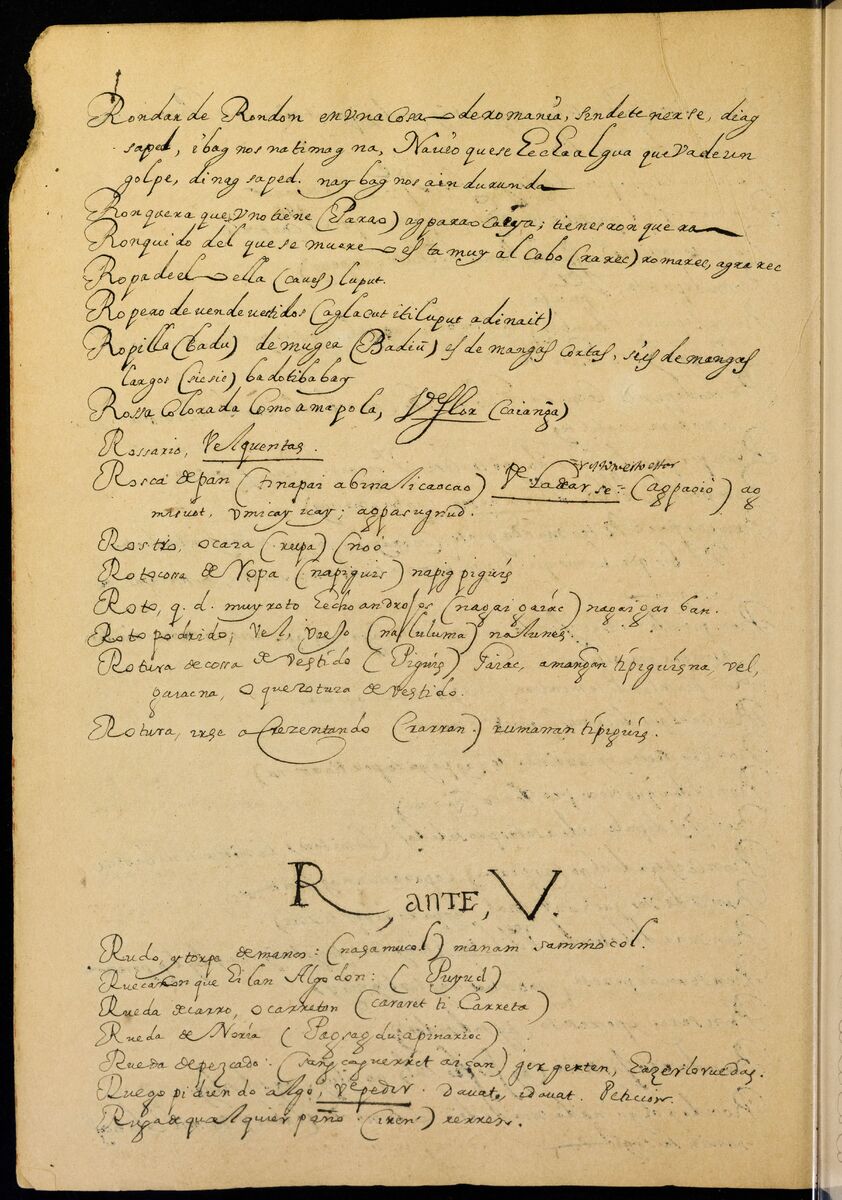 Rondar de Rondon en vna cosa de romania, sin detenerse, diag
saped, ibag nos na timag na, Navio que se Echa al gua que va de un
golpe, dinag saped. nay bag nos ain durunda
Ronquera que vno tiene (Parao) agparao caiya; tienes ron que ra
Ronquido del que se muere es ta muy al cabo (rarec) romarec, agrarec
Ropa de el ella (caues) luput.
Ropero de vende vestidos (aglacut iti luput a dinait)
Ropilla (badu) de muger (Badiu) es de mangas cortas, si es de mangas
largos (siesie) badotibabay
Rossa Colorada Como amapola, Ve flor (caianga)
Rossario, Vel quentas.
Rosca de pan (tinapai a binalicaocao) Ve Ladear, se (agpagio) ag
misuot, vmicay icay; agpasugnud.
Rostro, o cara (rupa) (noo
Roto cossa de Ropa, (napiguis) napig piguis
Roto, q. d. muy roto Echo andrajos (nagai gaiac) nagai gai ban.
Roto podrido; Vel, viejo (naluluma) nalunes.
Rotura de cossa de vestido (Piguis) Gaiac, amangan ti piguis na, vel,
gaiacna, o que rotura de vestido.
Rotura, irse a Crezentando (rarran) rumanan ti piguis.
R, ante, V.
Rudo, y torpe de manos: (nasamucol) manam sammocol.
Rueca con que Eilan Algodon: (Puyud)
Rueda de carro, o carreton (cararet ti Carreta)
Rueda de Noria (Pagsagdu apinarioc)
Rueda de pezcado: (sang cap guerret aican) jergerten, Eazerlo ruedas.
Ruego pidiendo algo, Ve pedir. dauat, idauat. Peticion.
Ruga de qualquier paño (iren) rerren.